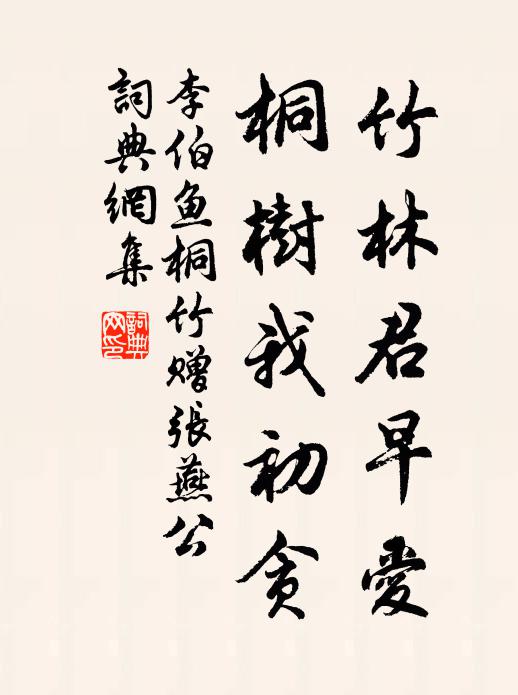 竹林君早愛
桐樹我初貪
李伯魚桐竹贈張燕公
詞典網集
詞典网印